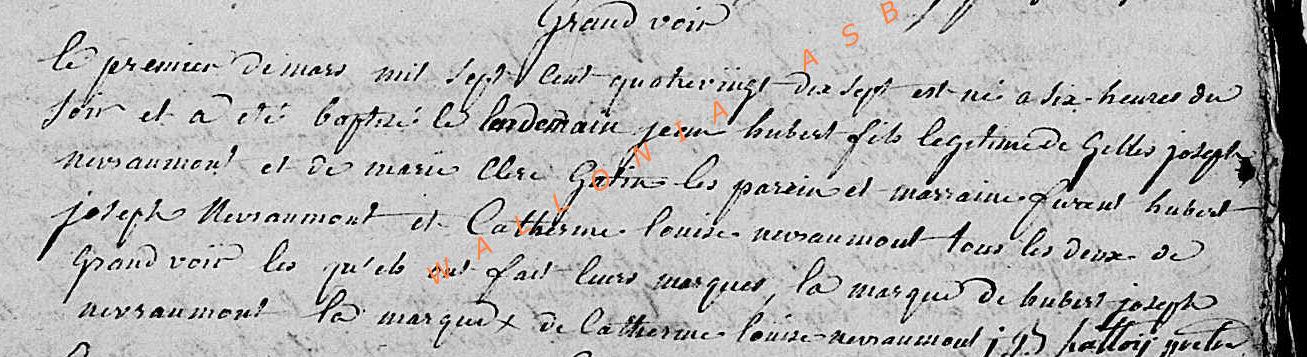 Grand voir
le premier de mars mil sept cent quatrevingt dix sept est né a six heures du
soir et a été baptisé le lendemain jean hubert fils legitime de Gilles joseph
nevraumont et de marie Clere Gatin les parein et marraine furant hubert
joseph Nevraumont et Catherine louise nevraumont tous les deux de
Grand voir les qu'els ont fait leurs marques, la marque de hubert joseph
nevraumont la marque x de Catherine louise nevraumont
WALLONIA ASB